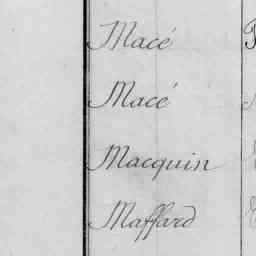 Macé
Macé
Macquin
Maffard